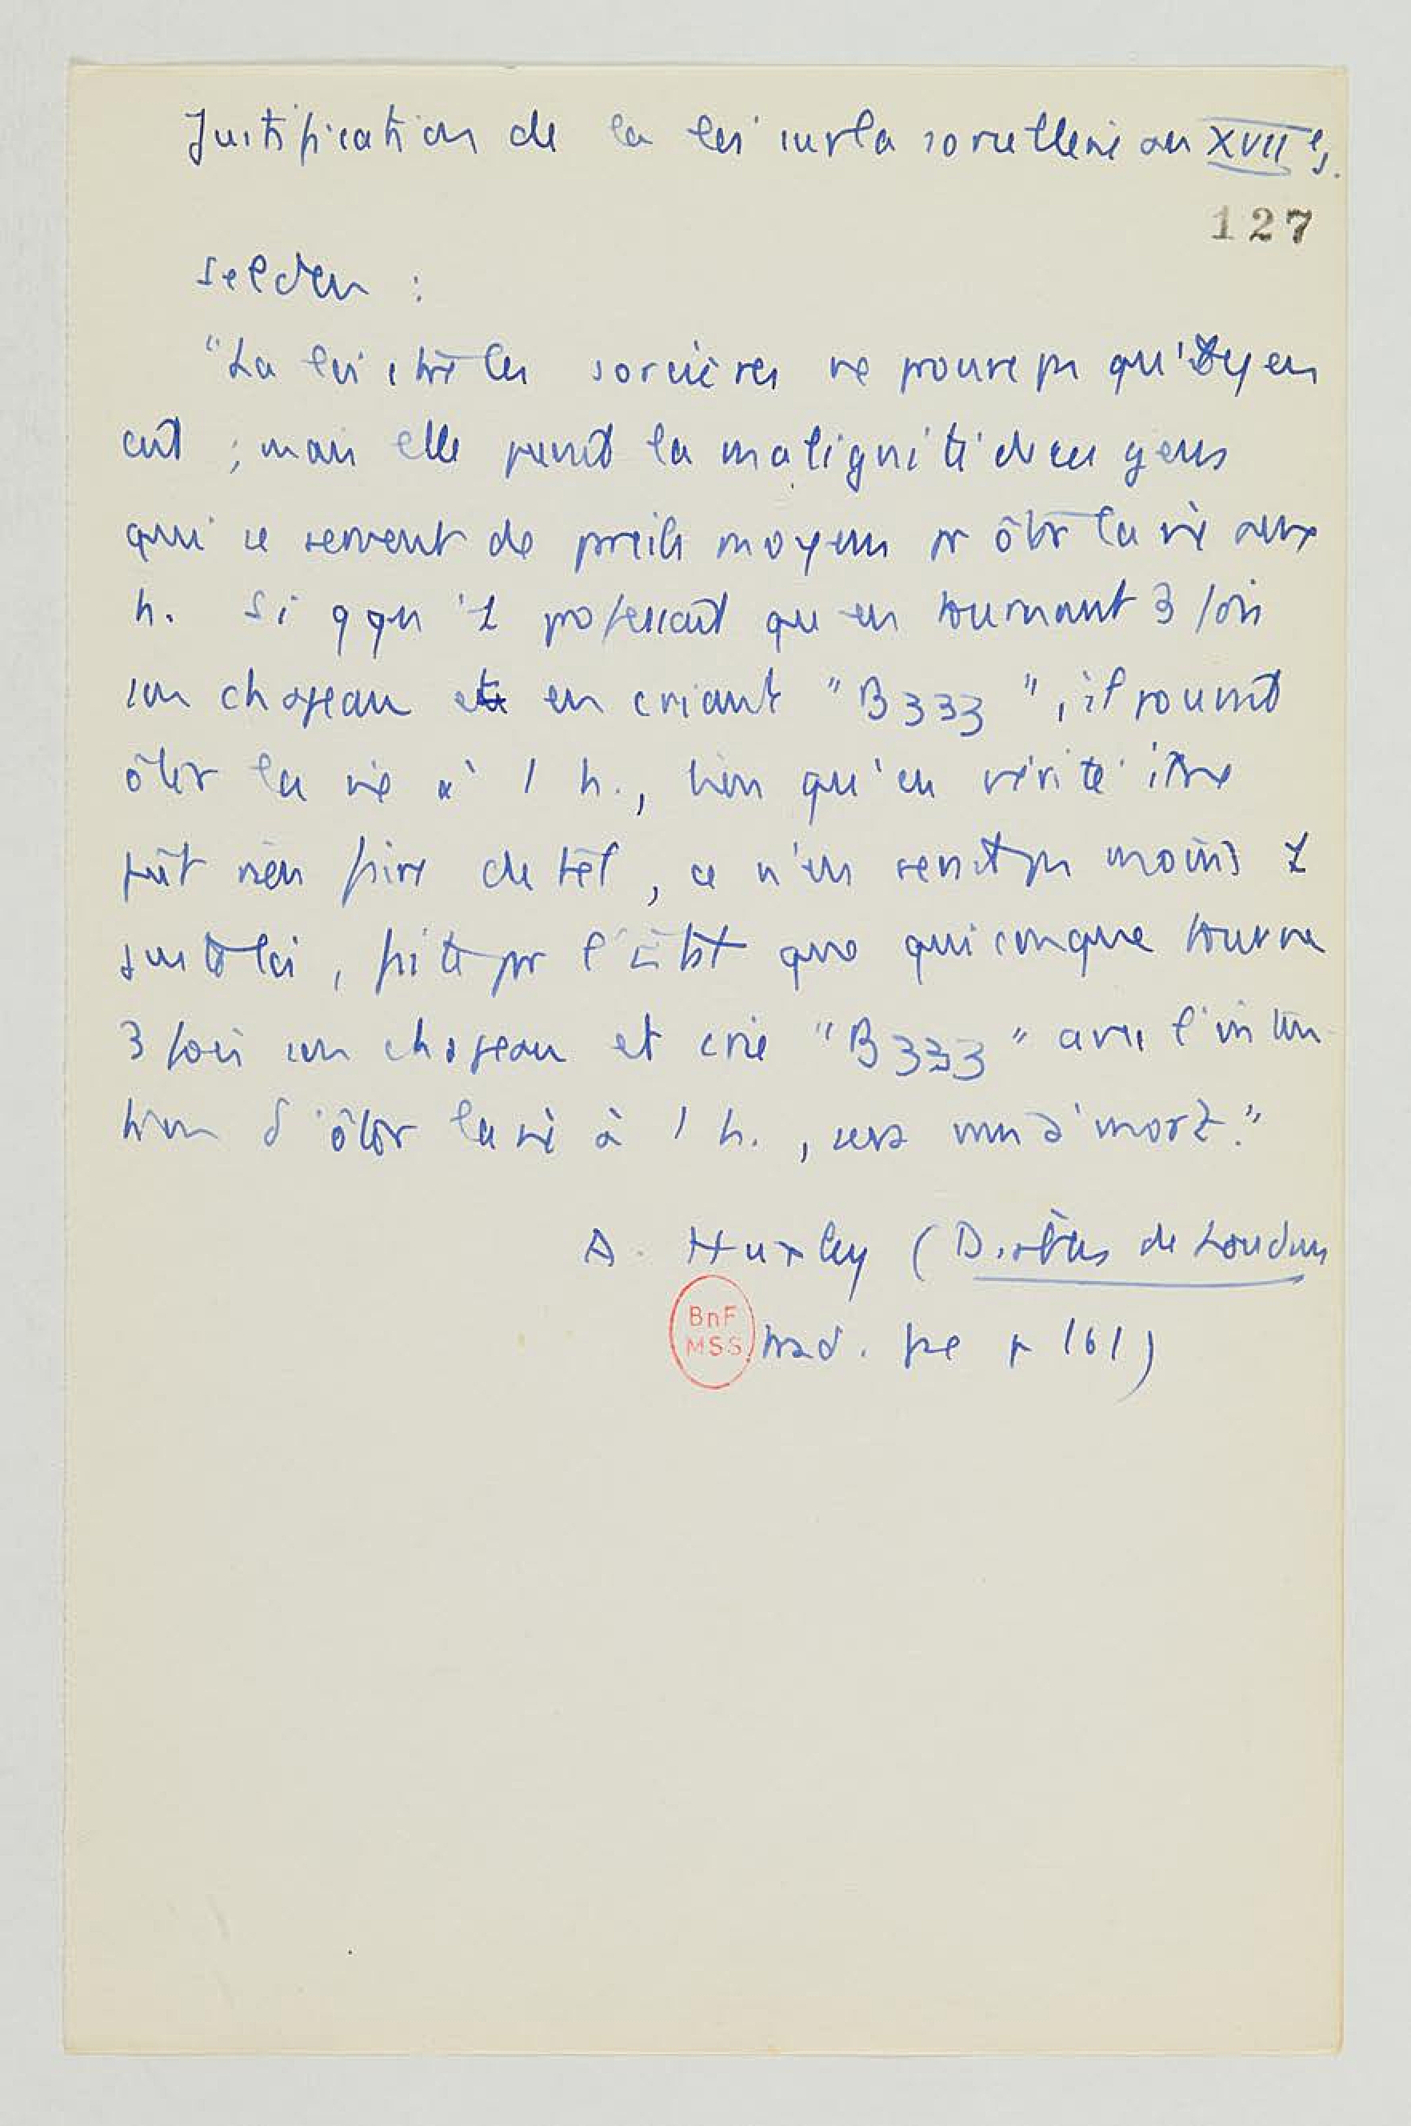 Justification de la loi sur la sorcellerie au XVIIe s.
127
Selden :
"La loi ctre les sorcières ne prouve pas qu'il y en
ait ; mais elle punit la malignité de ces gens
qui se servent de pareils moyens pr ôter la vie aux
h. Si qqu'1 professait qu'en tournant 3 fois
son chapeau et en criant "Bzzz", il pourrait
ôter la vie à 1 h., bien qu'en vérité il ne
pût rien faire de tel, ce n'en serait pas moins 1
juste loi, faite par l'État que quiconque tourne
3 fois son chapeau et crie "Bzzz" avec l'inten-
tion d'ôter la vie à 1 h., sera mis à mort."
A. Huxley (Diables de Loudun
BnF
MSS
trad. fse p 161)